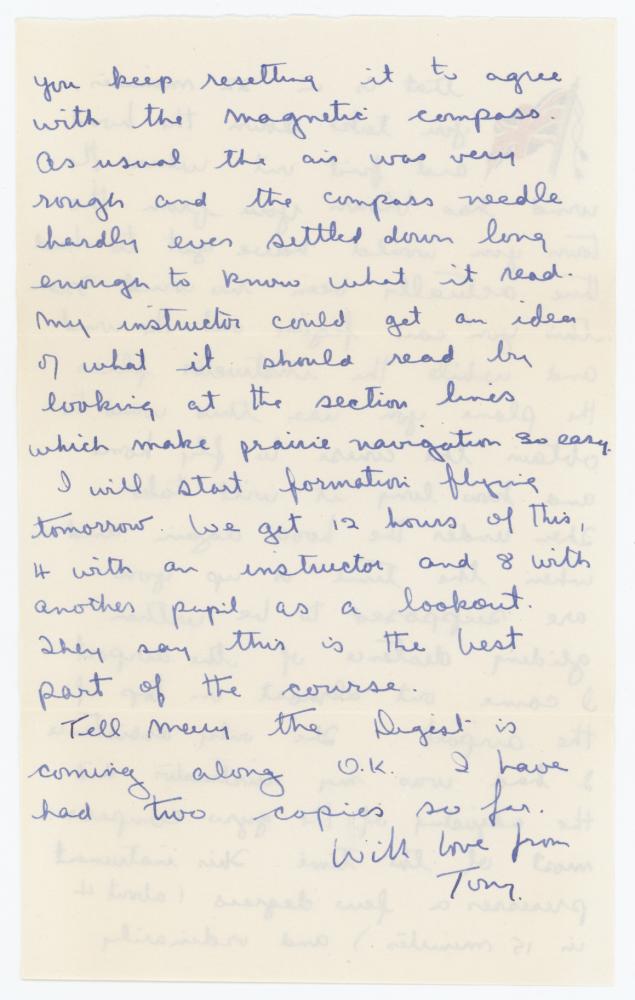 you keep resetting it to agree
with the magnetic compass.
As usual the air was very
rough and the compass needle
hardly ever settled down long
enough to know what it read.
My instructor could get an idea
of what it should read by
looking at the section lines
which make prairie navigation so easy.
I will start formation flying
tomorrow. We get 12 hours of this,
4 with an instructor and 8 with
another pupil as a lookout.
They say this is the best
part of the course.
Tell the Digest is
coming along O.K. I have
had two copies so far.
With love from
Tony.